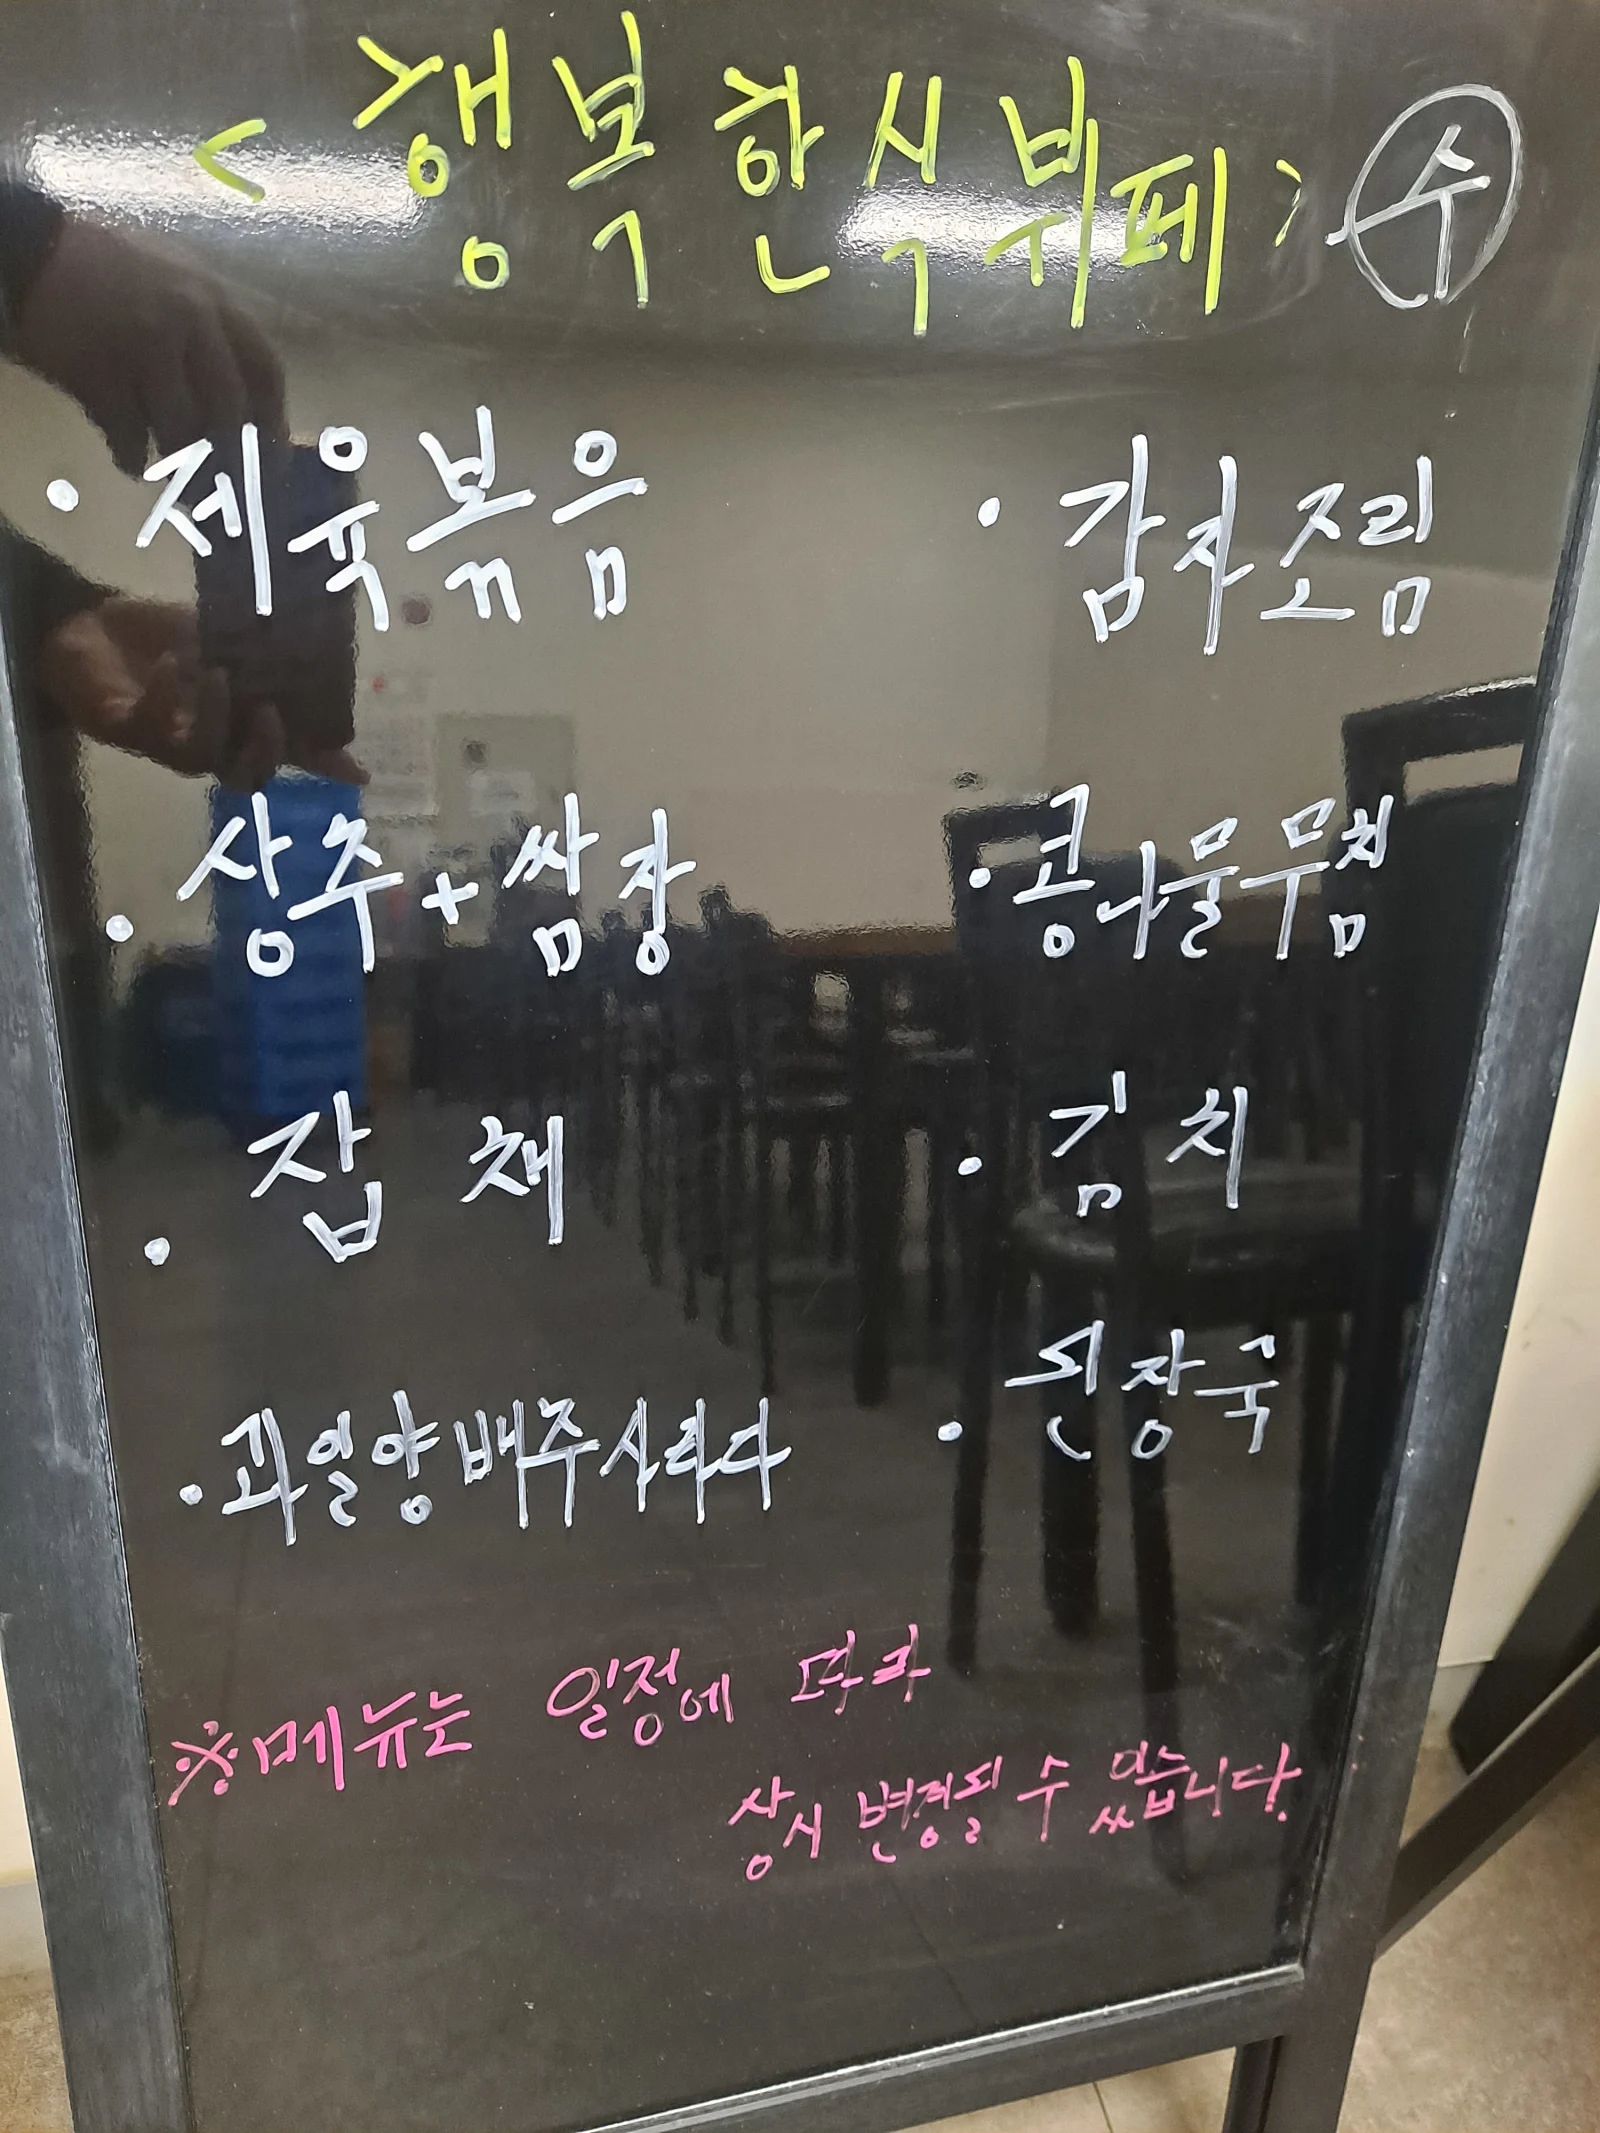 <행복한식뷔페> 수
· 제육볶음
· 감자조림
· 상추+쌈장
· 콩나물무침
· 잡채
· 김치
· 과일양배추사라다
· 된장국
※메뉴는 일정에 따라
상시 변경될 수 있습니다.